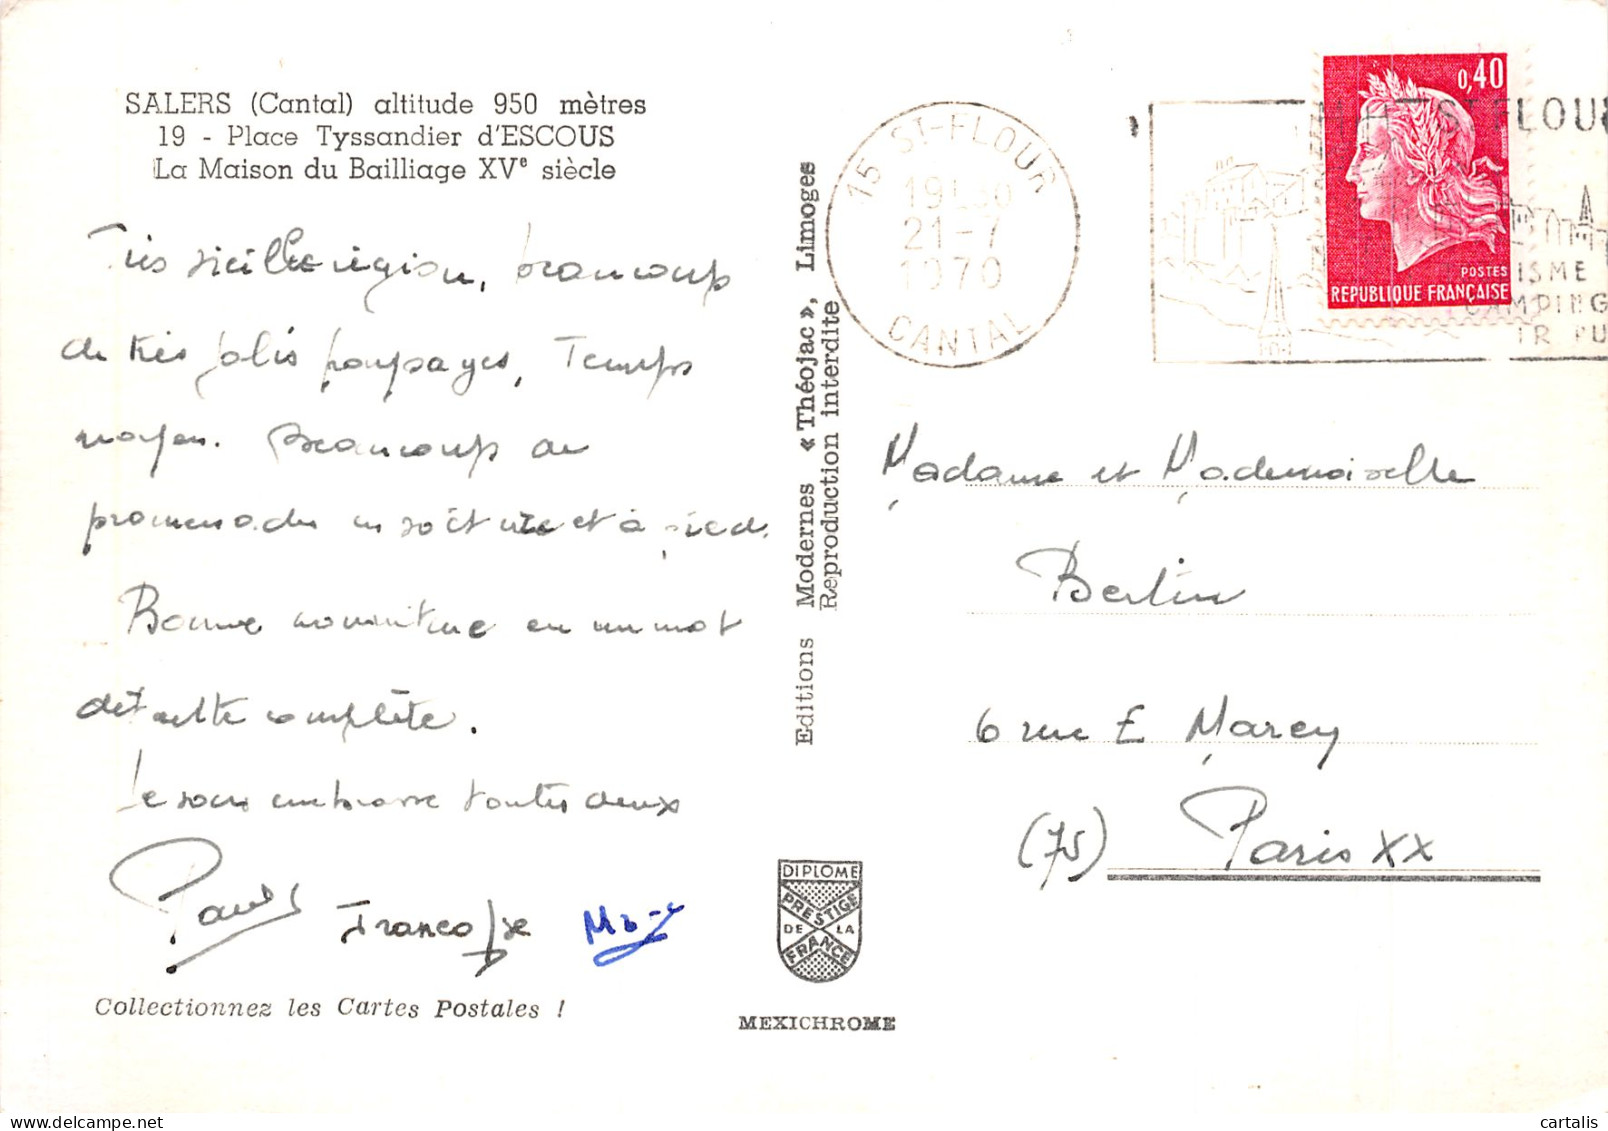 SALERS (Cantal) altitude 950 mètres
19 - Place Tyssandier d'ESCOUS
La Maison du Bailliage XVe siècle
Très vieille région, beaucoup
de très jolis paysages, Temps
moyen. Beaucoup de
promenades en voiture et à pied.
Bonne nourriture en un mot
détente complète.
Je vous embrasse toutes deux
Françoise
Collectionnez les Cartes Postales !
Editions Modernes « Théojac », Limoges
Reproduction interdite
DIPLOME
PRESTIGE
DE LA
FRANCE
MEXICHROME
15 ST-FLOUR
21-7
1970
CANTAL
0,40
POSTES
REPUBLIQUE FRANÇAISE
ST-FLOUR
ISME
CAMPING
Madame et Mademoiselle
Berlin
6 rue E Marey
(75) Paris XX
cartalis